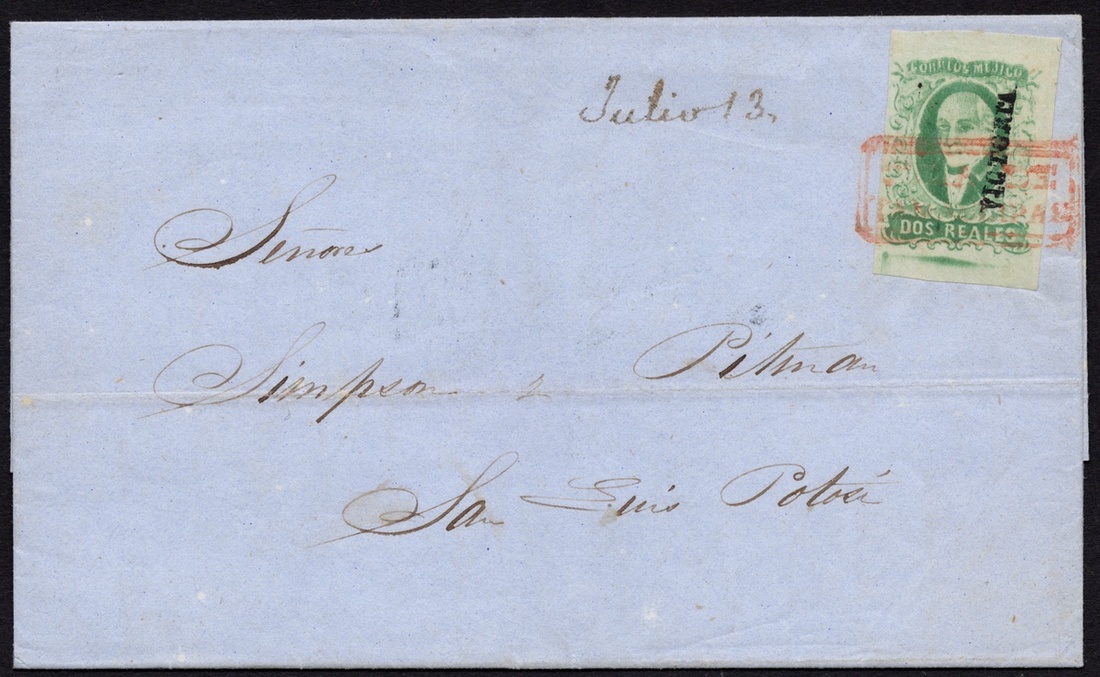 Julio 13.
CORREOS MEJICO
VICTORIA
DOS REALES
Señores
Simpson y Pitman
San Luis Potosí